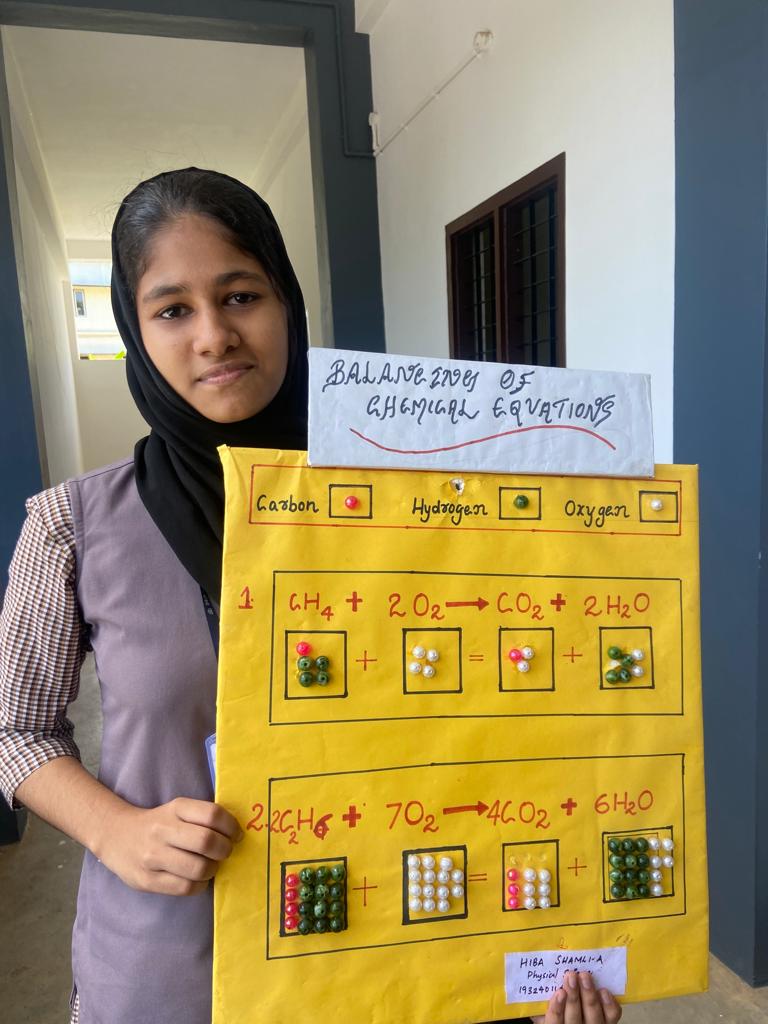 BALANCING OF
CHEMICAL EQUATIONS
Carbon Hydrogen Oxygen
1 CH₄ + 2O₂ → CO₂ + 2H₂O
+ = +
2. 2C₂H₆ + 7O₂ → 4CO₂ + 6H₂O
+ = +
HIBA SHAMLI-A
Physical